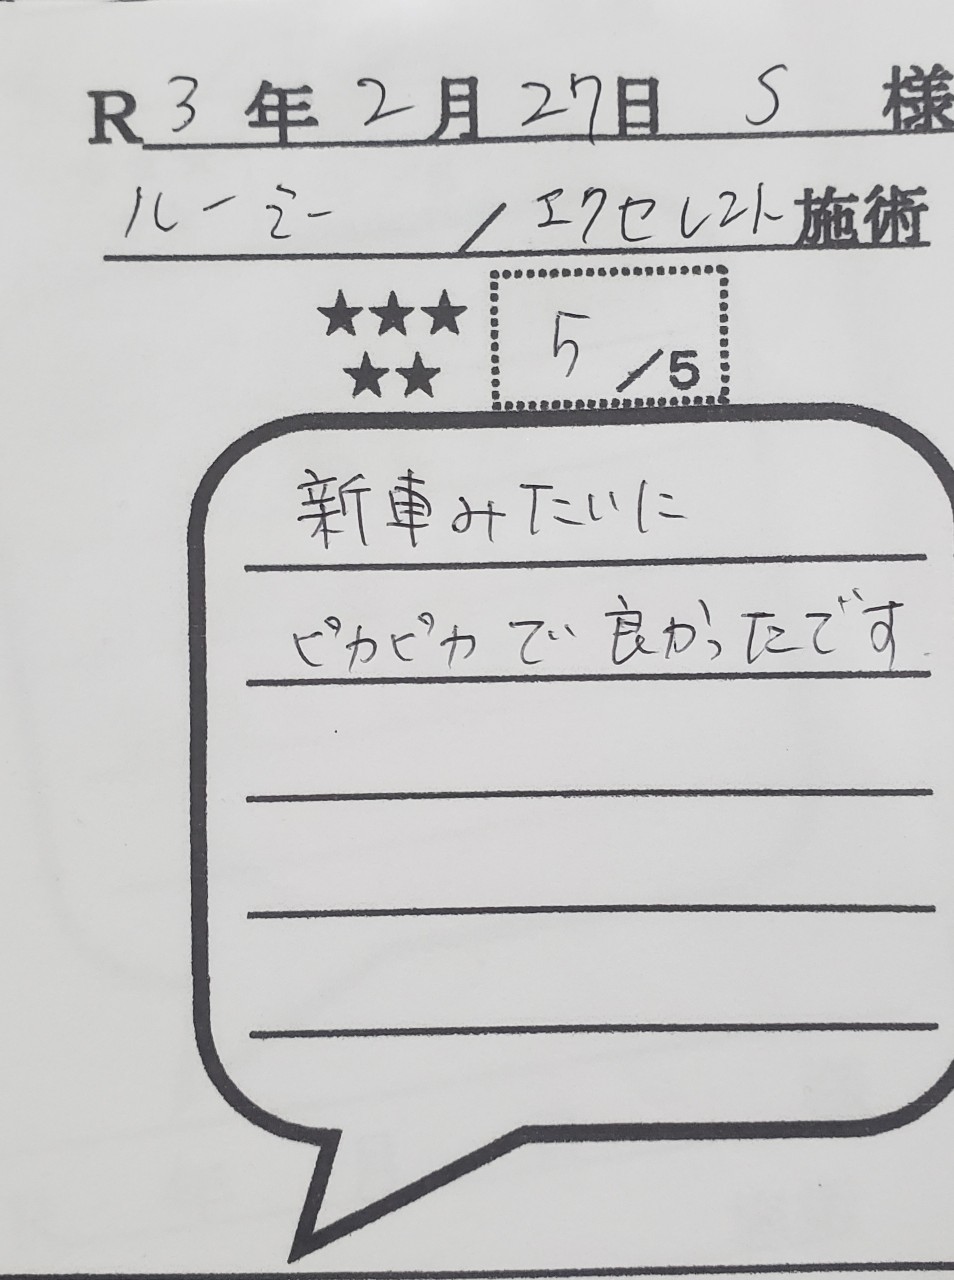 R3年2月27日 S 様
ルーミー / エクセレント施術
★★★ 5/5
★★
新車みたいに
ピカピカで良かったです